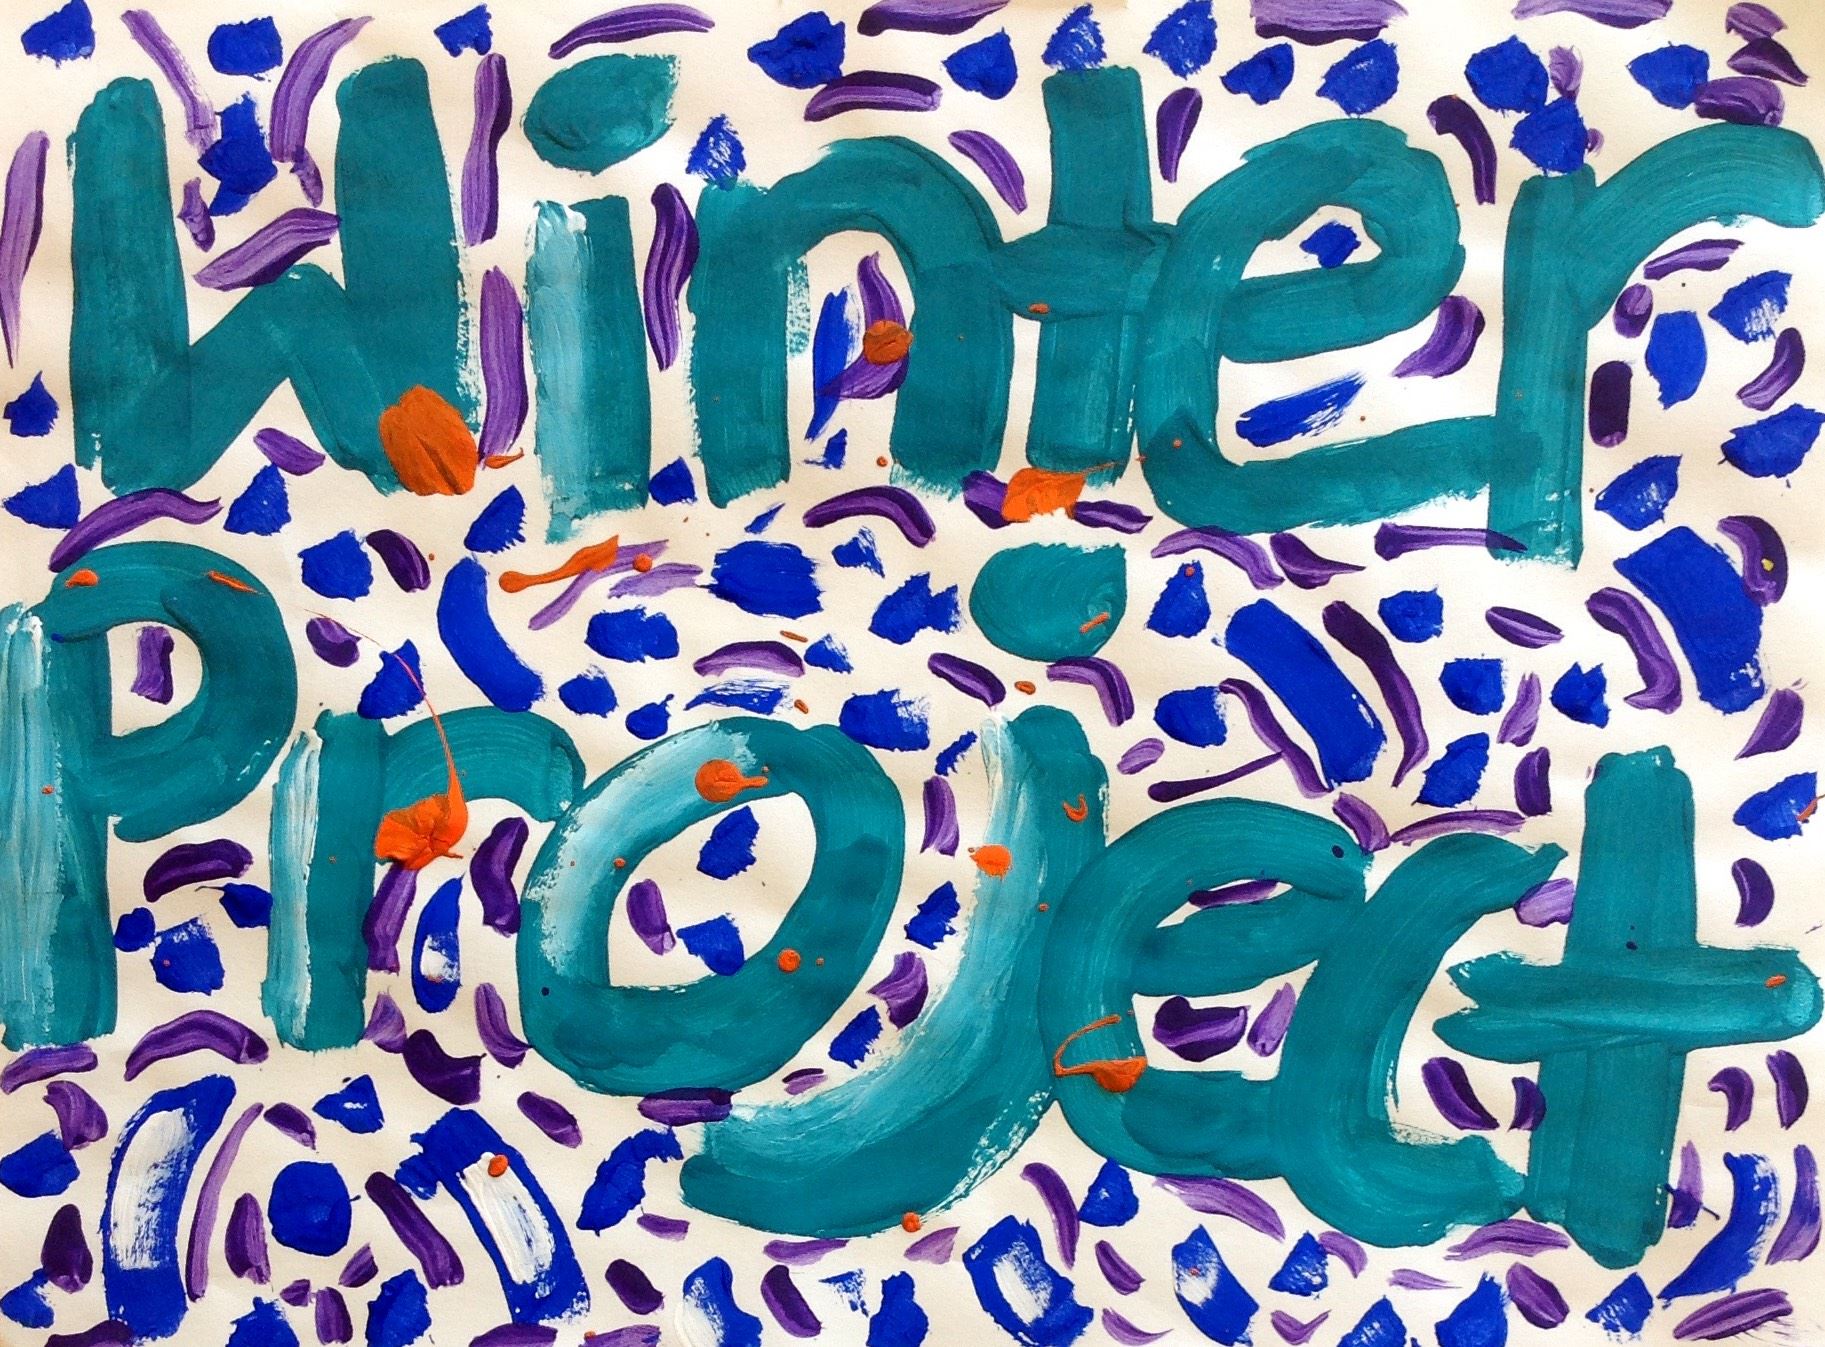 Winter
Project